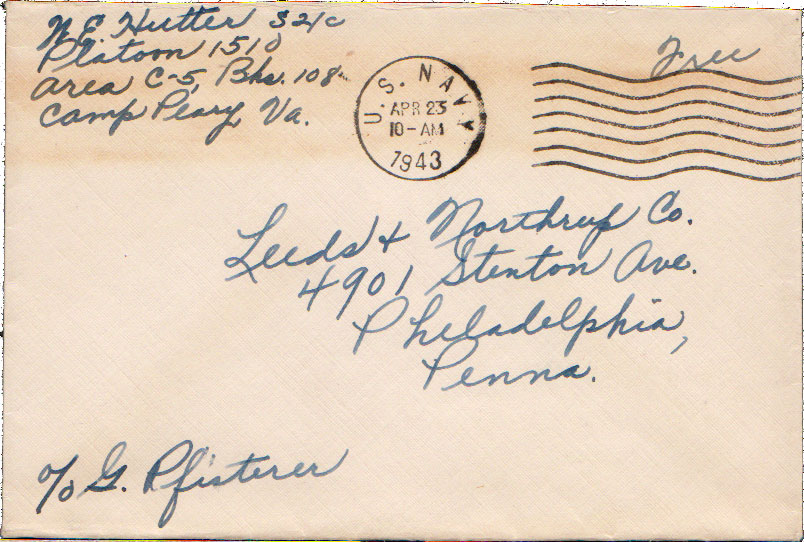 N.E. Hutter S2/c
Platoon 1510
Area C-5, Bks. 108
Camp Peary, Va.
U.S. NAVY
APR 23
10-AM
1943
Free
Leeds & Northrup Co.
4901 Stenton Ave.
Philadelphia,
Penna.
c/o G. Pfisterer